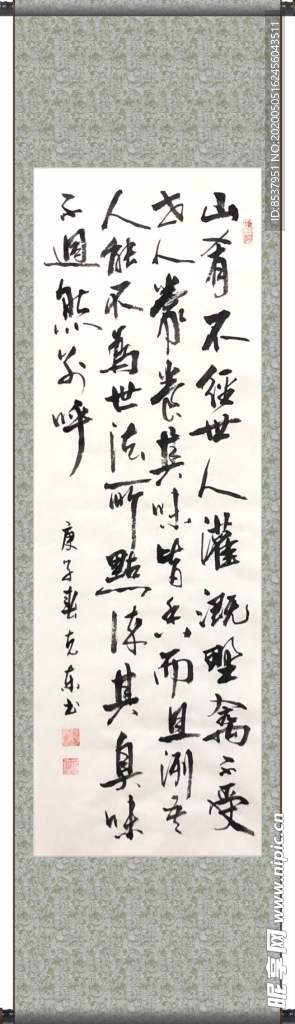 山肴不經世人灌溉野禽不受
世人豢養其味皆香而且冽吾
人能不為世法所點染其臭味
不迥然別呼
庚子春克东书
ID:8537951 NO:20200505162456043511
昵享网 www.nipic.cn